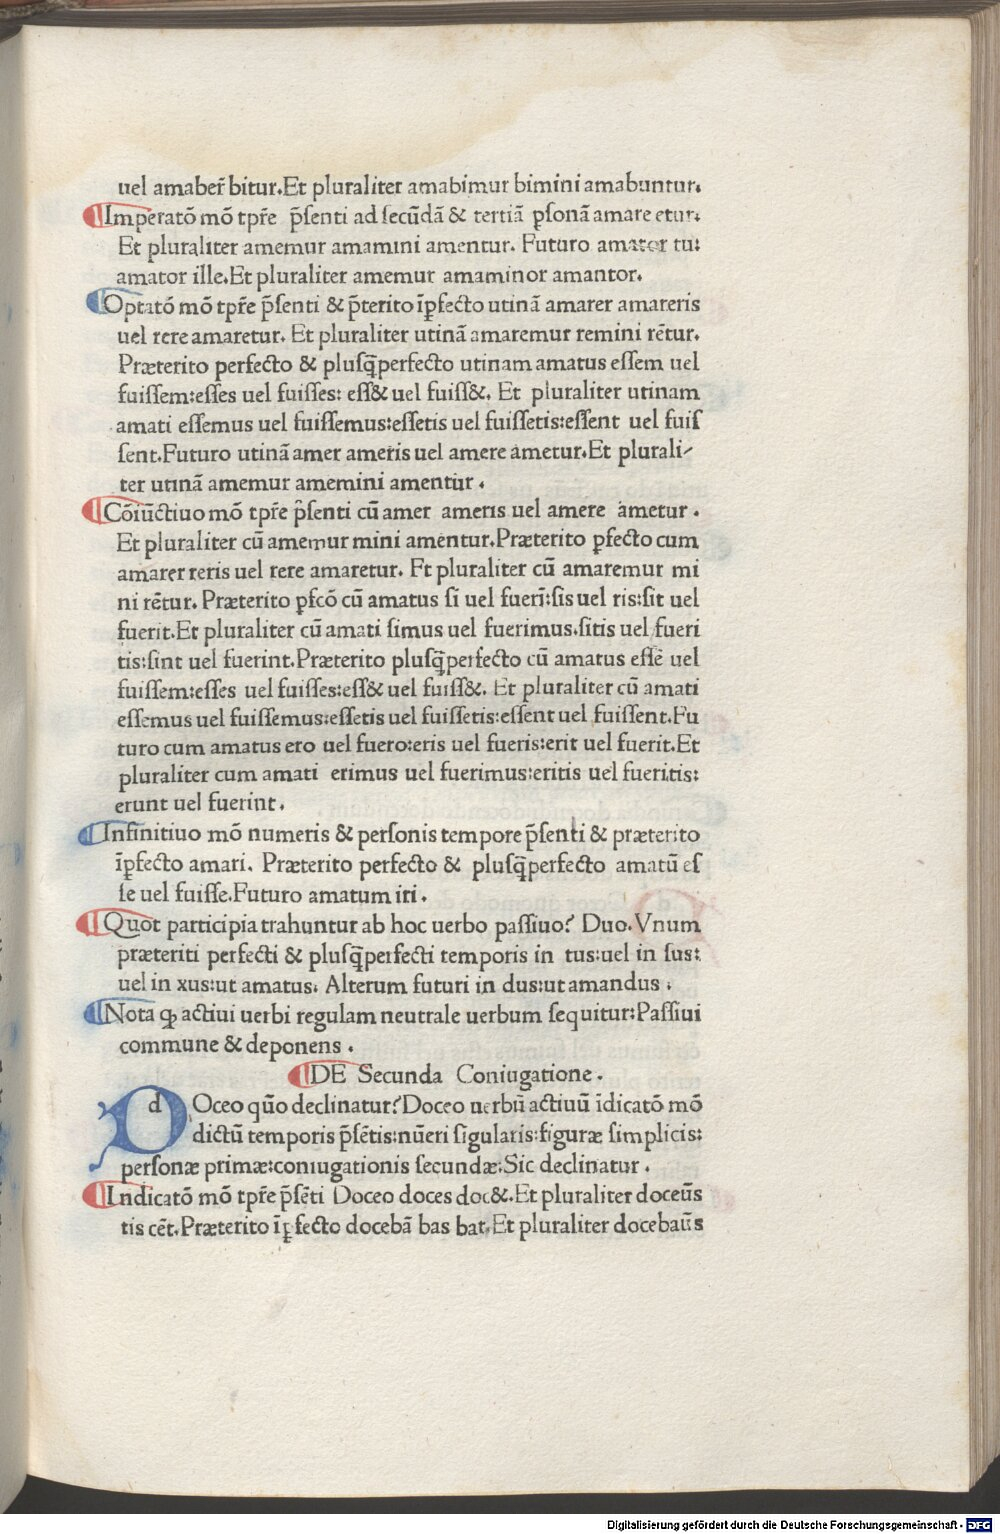 uel amaber̃ bitur.Et pluraliter amabimur bimini amabuntur.
Imperatõ mõ tp̃re p̃senti ad secũdã & tertiã ꝑsonã amare etur.
Et pluraliter amemur amamini amentur. Futuro amator tu:
amator ille.Et pluraliter amemur amaminor amantor.
Optatõ mõ tp̃re p̃senti & p̃terito ĩꝑfecto utinã amarer amareris
uel rere amaretur. Et pluraliter utinã amaremur remini rẽtur.
Præterito perfecto & plusq̃perfecto utinam amatus essem uel
fuissem:esses uel fuisses: ess& uel fuiss&. Et pluraliter utinam
amati essemus uel fuissemus:essetis uel fuissetis:essent uel fuis
sent.Futuro utinã amer ameris uel amere ametur.Et plurali-
ter utinã amemur amemini amentur.
Cõiũctiuo mõ tp̃re p̃senti cũ amer ameris uel amere ametur.
Et pluraliter cũ amemur mini amentur.Præterito ꝑfecto cum
amarer reris uel rere amaretur. Et pluraliter cũ amaremur mi
ni rẽtur. Præterito ꝑfcõ cũ amatus si uel fuerĩ:sis uel ris:sit uel
fuerit.Et pluraliter cũ amati simus uel fuerimus.sitis uel fueri
tis:sint uel fuerint.Præterito plusq̃perfecto cũ amatus essẽ uel
fuissem:esses uel fuisses:ess& uel fuiss&. Et pluraliter cũ amati
essemus uel fuissemus:essetis uel fuissetis:essent uel fuissent.Fu
turo cum amatus ero uel fuero:eris uel fueris:erit uel fuerit.Et
pluraliter cum amati erimus uel fuerimus:eritis uel fueritis:
erunt uel fuerint.
Infinitiuo mõ numeris & personis tempore p̃senti & præterito
ĩꝑfecto amari. Præterito perfecto & plusq̃perfecto amatũ es
se uel fuisse.Futuro amatum iri.
Quot participia trahuntur ab hoc uerbo passiuo? Duo.Vnum
præteriti perfecti & plusq̃perfecti temporis in tus:uel in sus:
uel in xus:ut amatus. Alterum futuri in dus:ut amandus.
Nota ꝙ actiui uerbi regulam neutrale uerbum sequitur:Passiui
commune & deponens.
DE Secunda Coniugatione.
dOceo quõ declinatur? Doceo uerbũ actiuũ ĩdicatõ mõ
dictũ temporis p̃sẽtis:nũeri sĩgularis:figuræ simplicis:
personæ primæ:coniugationis secundæ:Sic declinatur.
Indicatõ mõ tp̃re p̃sẽti Doceo doces doc&.Et pluraliter doceũs
tis cẽt.Præterito ĩꝑfecto docebã bas bat.Et pluraliter docebaũs
Digitalisierung gefördert durch die Deutsche Forschungsgemeinschaft - DFG